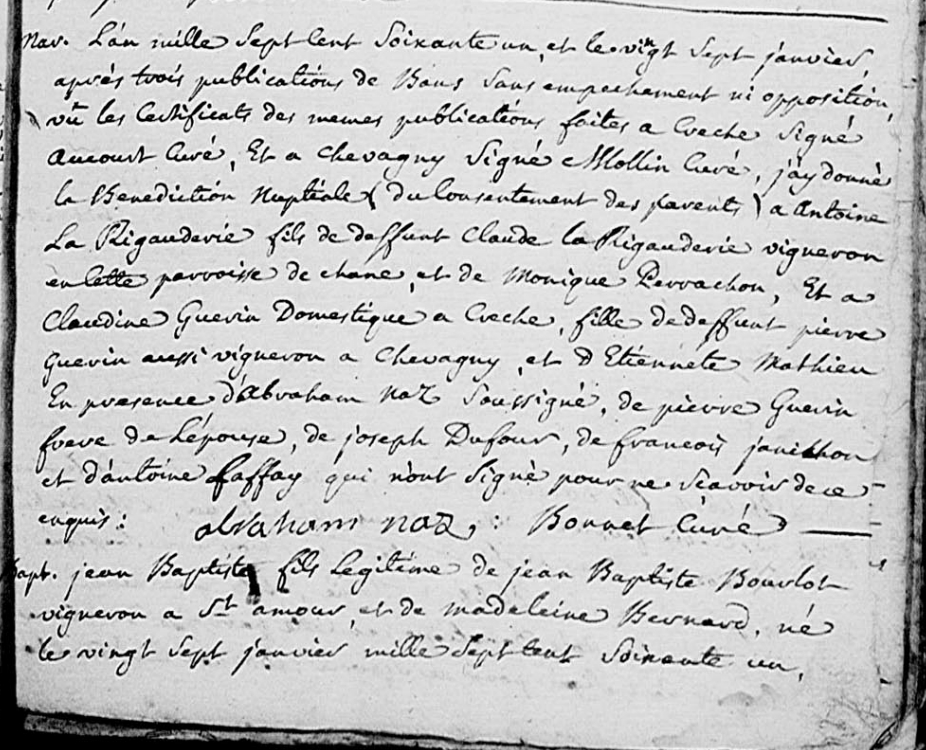 Mar. L'an mille Sept Cent Soixante un, et le vingt Sept janvier,
aprés trois publications de Bans Sans empechement ni opposition,
vû les Certificats des memes publications faites a Creche Signé
Aucourt Curé, Et a Chevagny Signé Mollin Curé, j'ay donné
la Benediction Nuptiale (du Consentement des parents) a Antoine
La Rigauderie fils de deffunt Claude la Rigauderie vigneron
en Cette parroisse de chane, et de Monique Perrachon, Et a
Claudine Guerin Domestique a Creche, fille de deffunt pierre
Guerin aussi vigneron a Chevagny, et d'Etiennete Mathieu
En presence d'Abraham Naz Soussigné, de pierre Guerin
frere de L'épouse, de joseph Dufour, de francois janichon
et d'antoine Laffay qui n'ont Signé pour ne Scavoir de ce
enquis: abraham naz, : Bonnet Curé
Bapt. jean Baptiste fils Legitime de jean Baptiste Bourlot
vigneron a St amour, et de Madeleine Bernard, né
le vingt Sept janvier mille Sept Cent Soixante un,